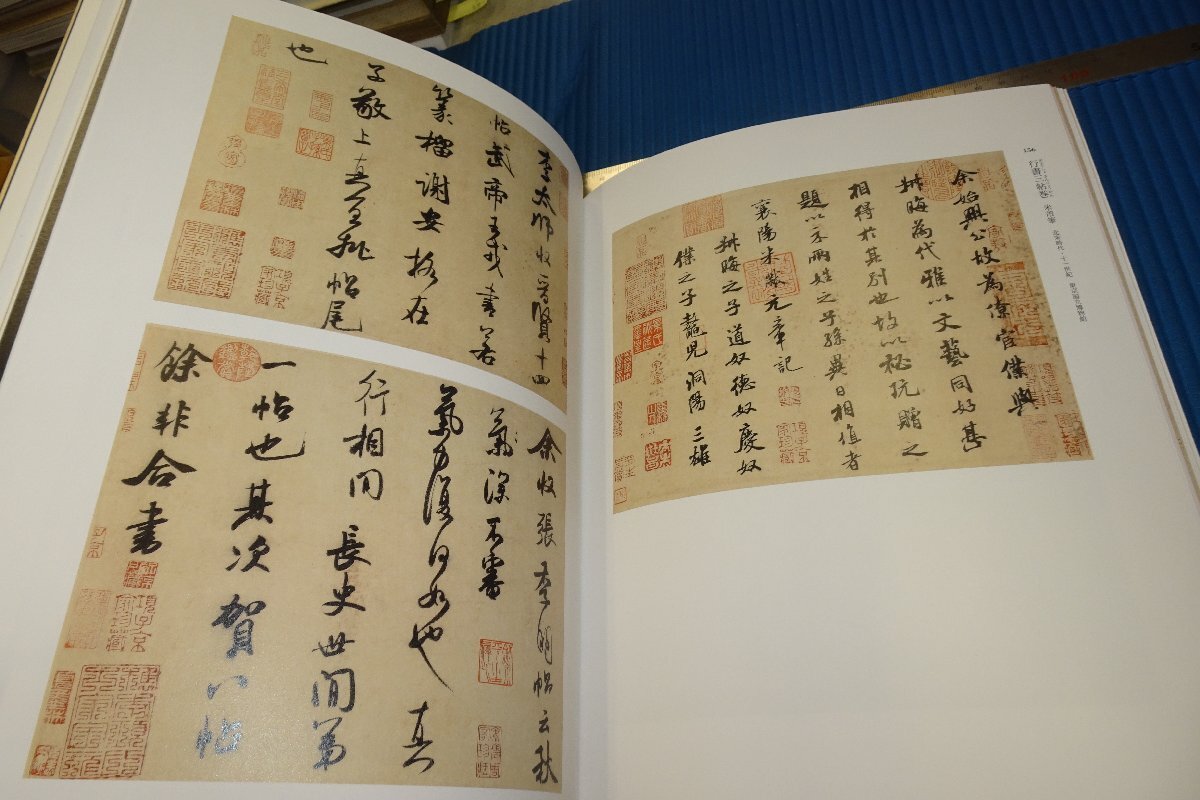 156
行書三帖巻 米芾筆 北宋時代・十一世紀 東京国立博物館
余始興公故為僚宦僕與
叔晦為代雅以文藝同好甚
相得於其別也故以秘玩贈之
題以示兩姓之子孫異日相值者
襄陽米黻元章記
叔晦之子道奴德奴慶奴
僕之子鼇兒洞陽三雄
李太師收晉賢十四
帖武帝王戎書若
篆籀謝安格在
子敬上真宜批帖尾
也
余收張季明帖云秋
氣深不審
氣力復何如也真
行相間長史世間第
一帖也其次賀八帖
餘非合書